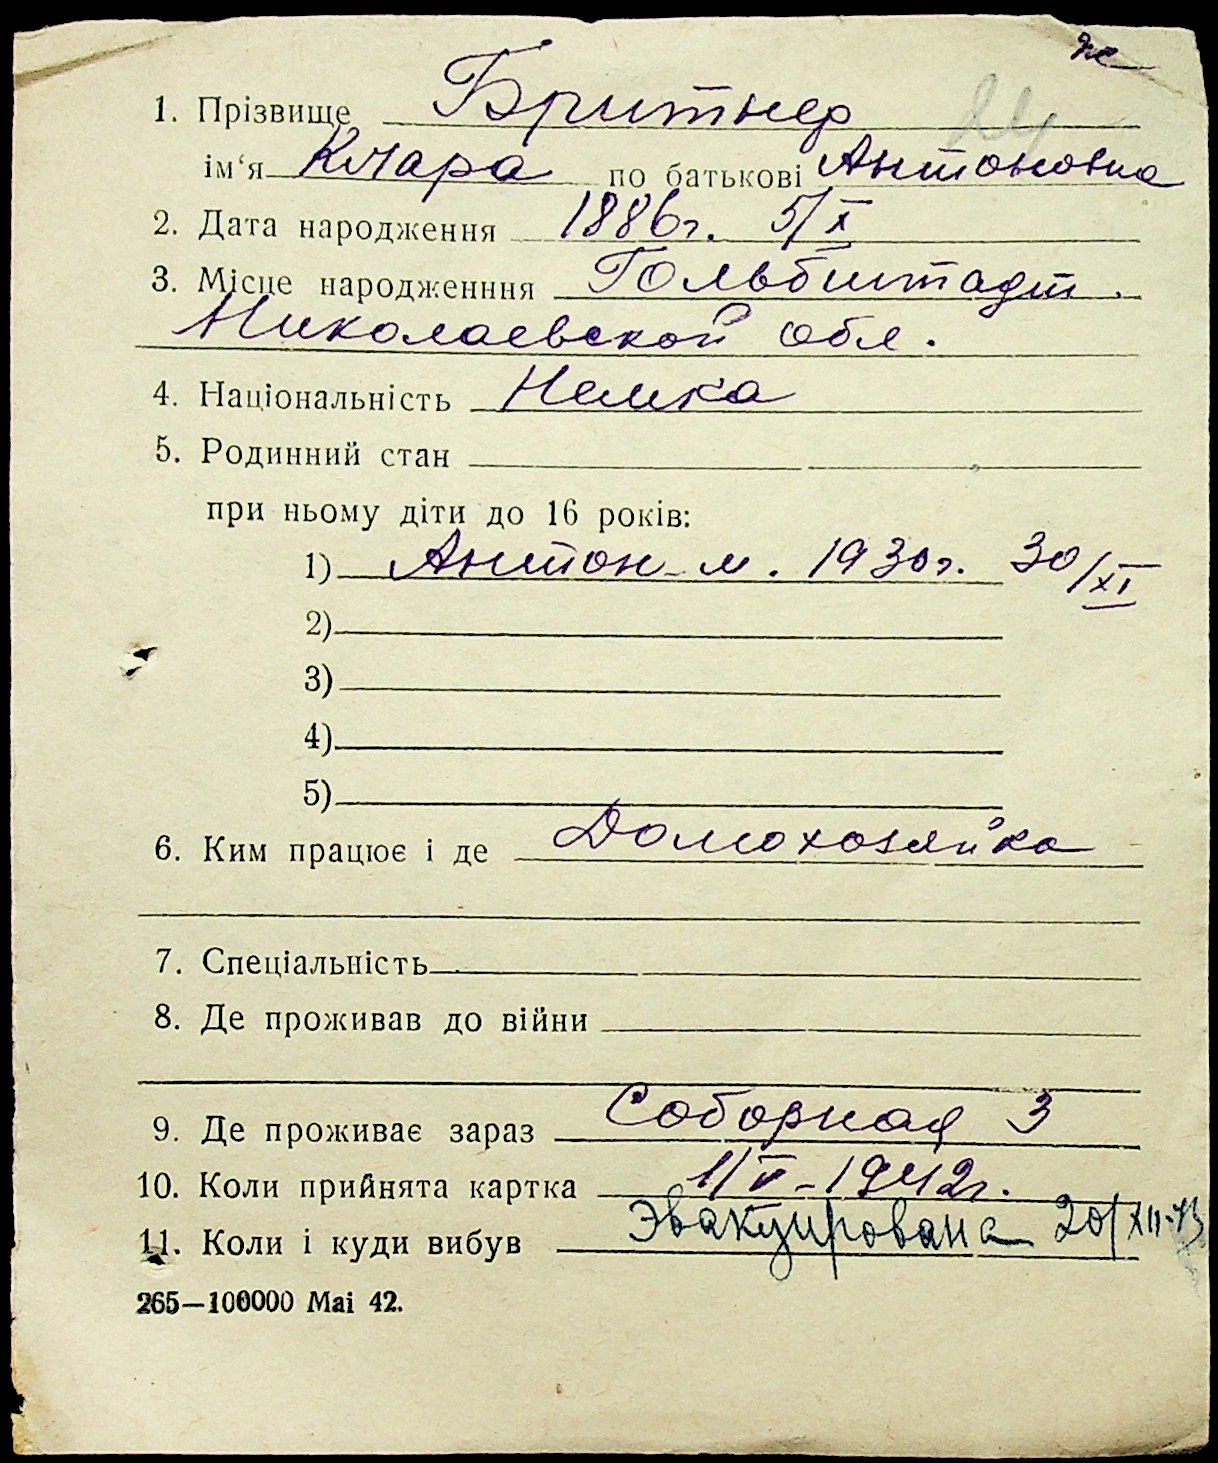 1. Прізвище Бритнер
ім'я Клара по батькові Антоновна
2. Дата народження 1886г. 5/X
3. Місце народженння Гольбштадт.
Николаевской обл.
4. Національність Немка
5. Родинний стан
при ньому діти до 16 років:
1) Антон м. 1930г. 30/XI
2)
3)
4)
5)
6. Ким працює і де Домохозяйка
7. Спеціальність
8. Де проживав до війни
9. Де проживає зараз Соборная 3
10. Коли прийнята картка 1/V-1942г.
11. Коли і куди вибув Эвакуирована 20/XII-43
265—100000 Mai 42.